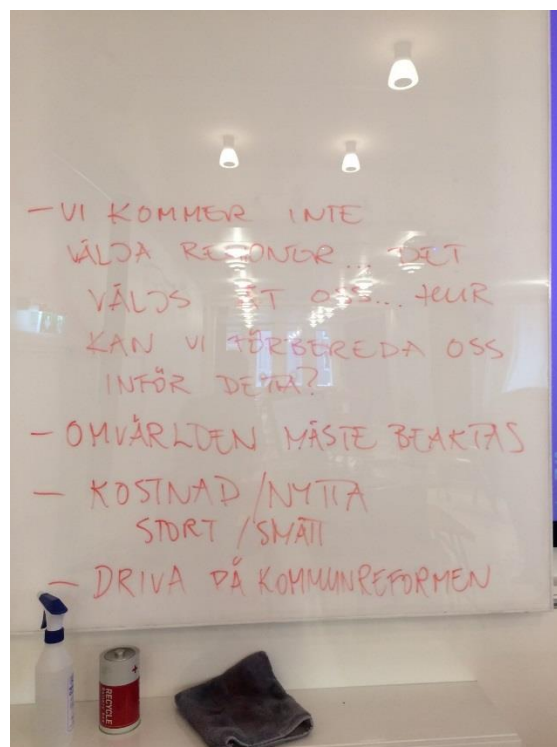 - VI KOMMER INTE
VÄLJA REGIONER... DET
VÄLJS ÅT OSS... HUR
KAN VI FÖRBEREDA OSS
INFÖR DETTA?
- OMVÄRLDEN MÅSTE BEAKTAS
- KOSTNAD / NYTTA
STORT / SMÅTT
- DRIVA PÅ KOMMUNREFORMEN
RECYCLE